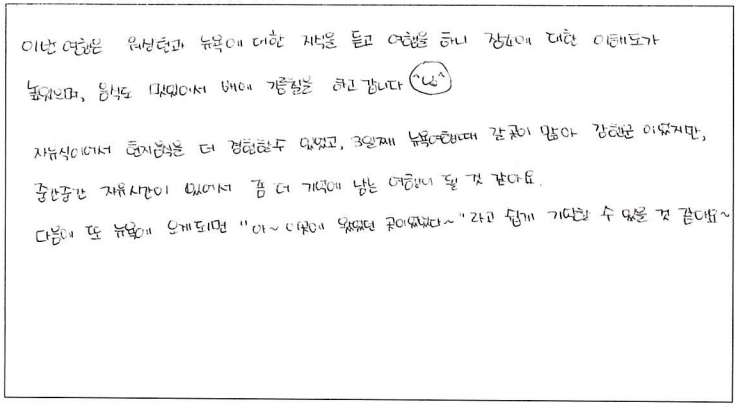 이번 여행은 워싱턴과 뉴욕에 대한 지식을 듣고 여행을 하니 장소에 대한 이해도가
높았으며, 음식도 맛있어서 배에 기름칠을 하고 갑니다
자유식이어서 현지음식을 더 경험할수 있었고, 3일째 뉴욕여행때 갈곳이 많아 강행군 이었지만,
중간중간 자유시간이 있어서 좀 더 기억에 남는 여행이 될 것 같아요.
다음에 또 뉴욕에 오게되면 "아~ 이곳에 왔었던 곳이었었다~" 라고 쉽게 기억할 수 있을 것 같아요~